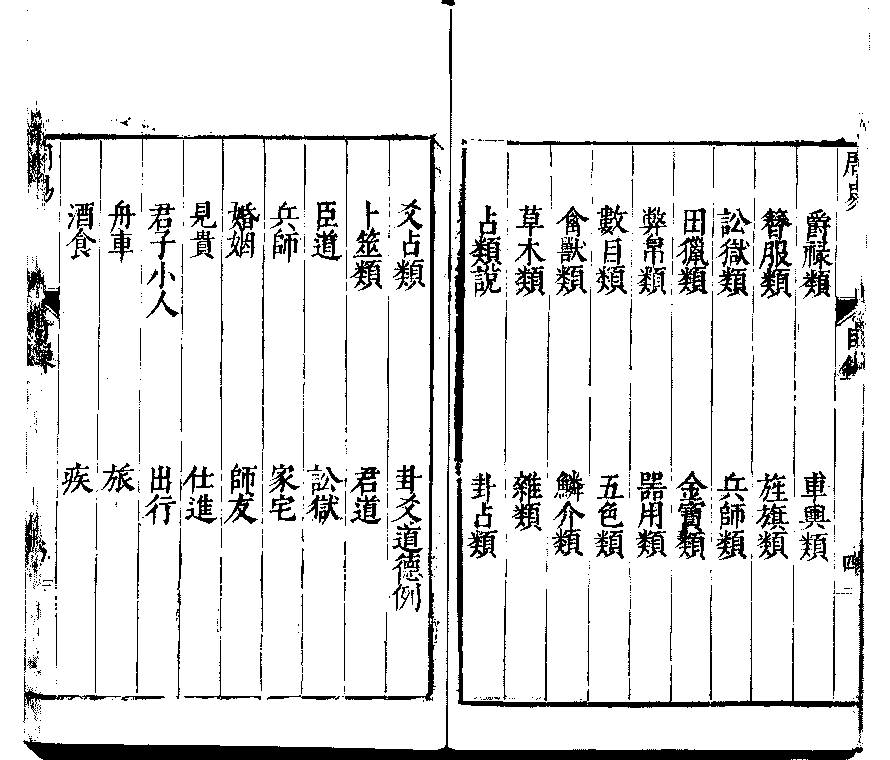 爵祿類　車輿類
簪服類　旌旗類
訟獄類　兵師類
田獵類　金寶類
弊帛類　器用類
數目類　五色類
禽獸類　鱗介類
草木類　雜類
占類說　卦占類
爻占類　卦爻道德例
卜筮類　君道
臣道　訟獄
兵師　家宅
婚姻　師友
見貴　仕進
君子小人　出行
舟車　旅
酒食　疾